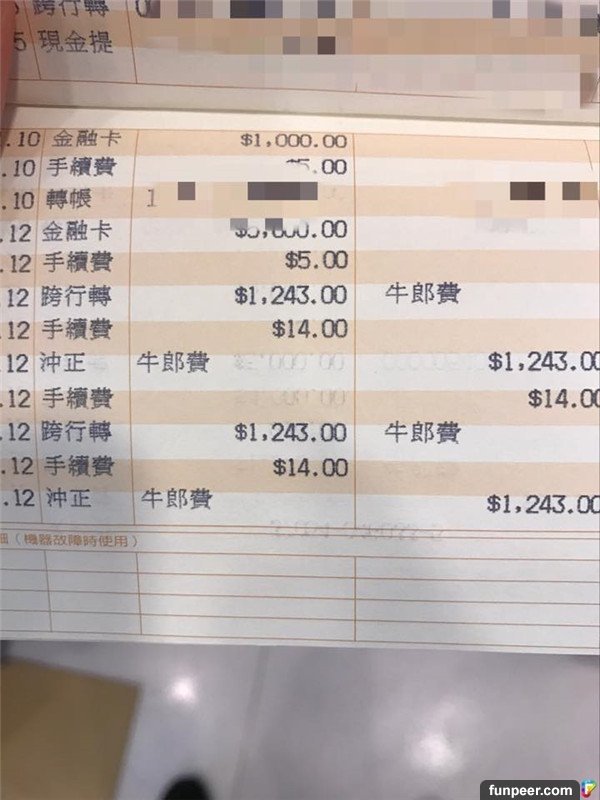 跨行轉
5 現金提
.10 金融卡 $1,000.00
.10 手續費 5.00
.10 轉帳 1
.12 金融卡 00
.12 手續費 $5.00
12 跨行轉 $1,243.00 牛郎費
12 手續費 $14.00
12 沖正 牛郎費 $1,243.00
.12 手續費 $14.00
.12 跨行轉 $1,243.00 牛郎費
.12 手續費 $14.00
.12 沖正 牛郎費 $1,243.00
細（機器故障時使用）
funpeer.com